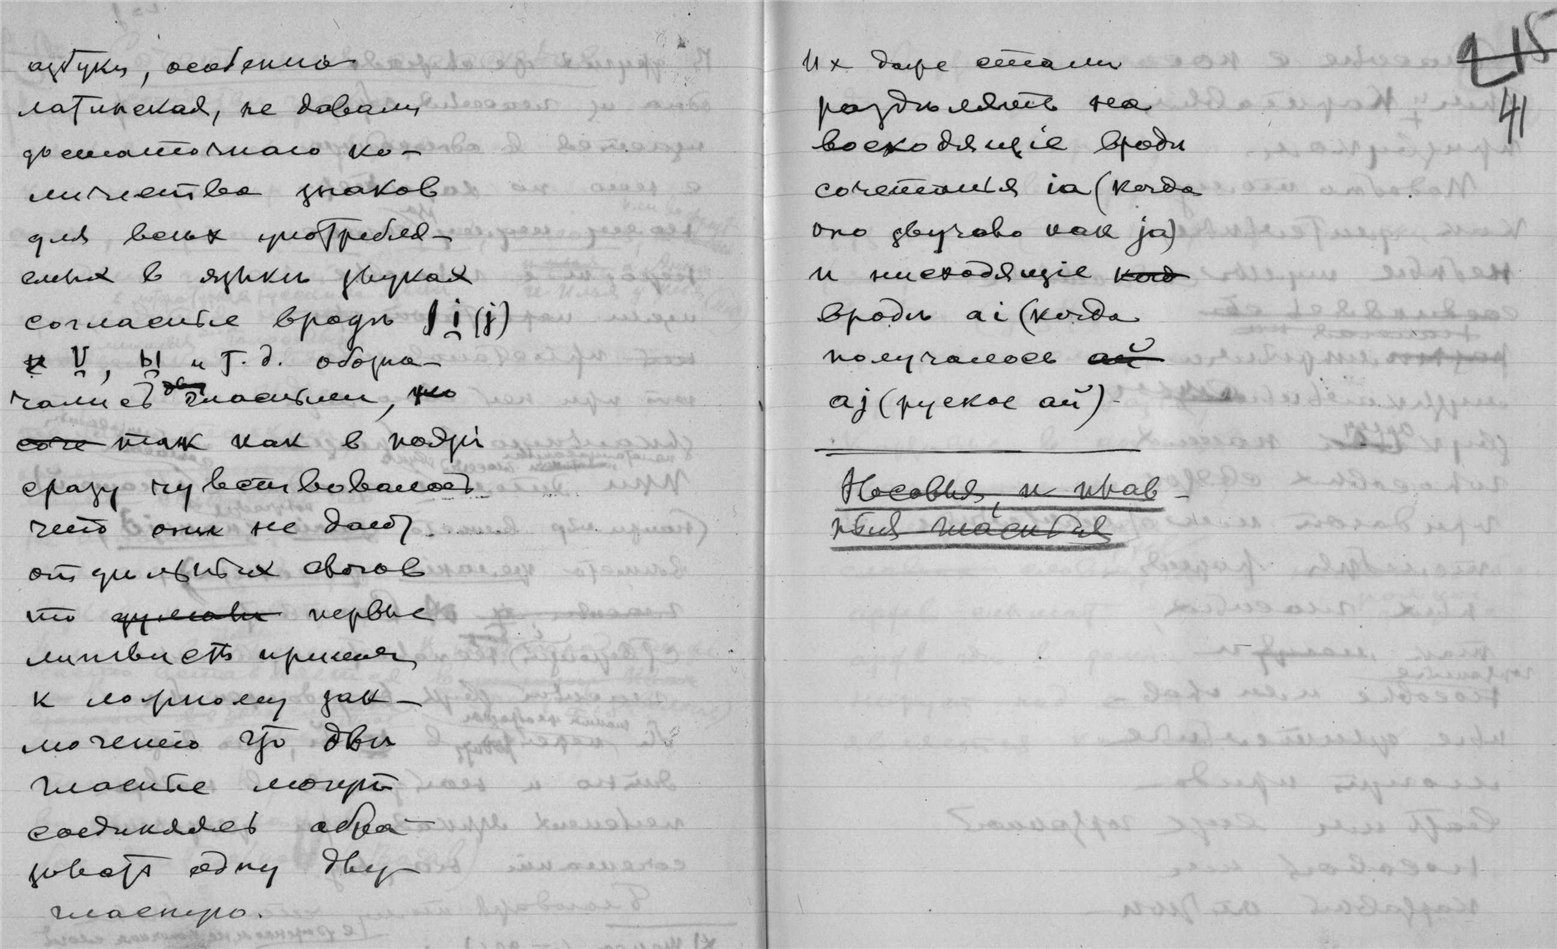 азбуки, особенно
латинская, не давали
достаточнаго ко-
личества знаков
для всѣх употребля-
емых в языкѣ звуках
согласные вродѣ i (j)
и v, ы и т. д. обозна-
чались двѣ гласными, но
соче так как в поэзіи
сразу чувствовалось
что они не дают
отдѣльных слогов
то думали первые
лингвисты пришли
к ложному зак-
люченію что двѣ
гласные могут
соединяясь обра-
зовать одну дву-
гласную.
Их даже стали
раздѣлять на
восходящіе вродѣ
сочетанія ia (когда
оно звучало как ja)
и нисходящіе когд
вродѣ ai (когда
получалось ай
aj (руское ай).
Носовыя и
гласныя
215
41